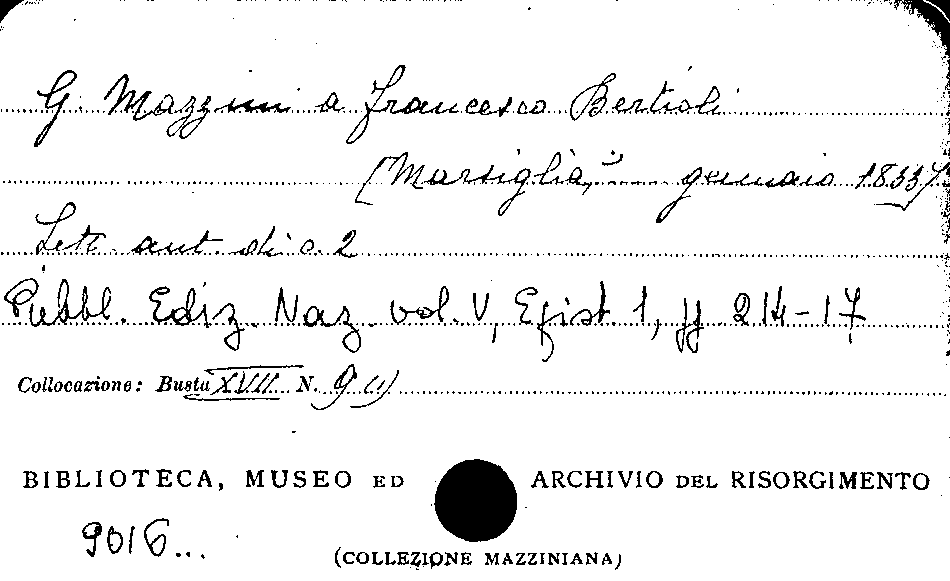 G. Mazzini a Francesco Bertioli
[Marsiglia, ... gennaio 1833]
Lett. aut. di c. 2
Pubbl. Ediz. Naz. vol. V, Epist. 1, pp 214-17
Collocazione: Busta XVIII N. 9 (1)
BIBLIOTECA, MUSEO ED ARCHIVIO DEL RISORGIMENTO
9016...
(COLLEZIONE MAZZINIANA)